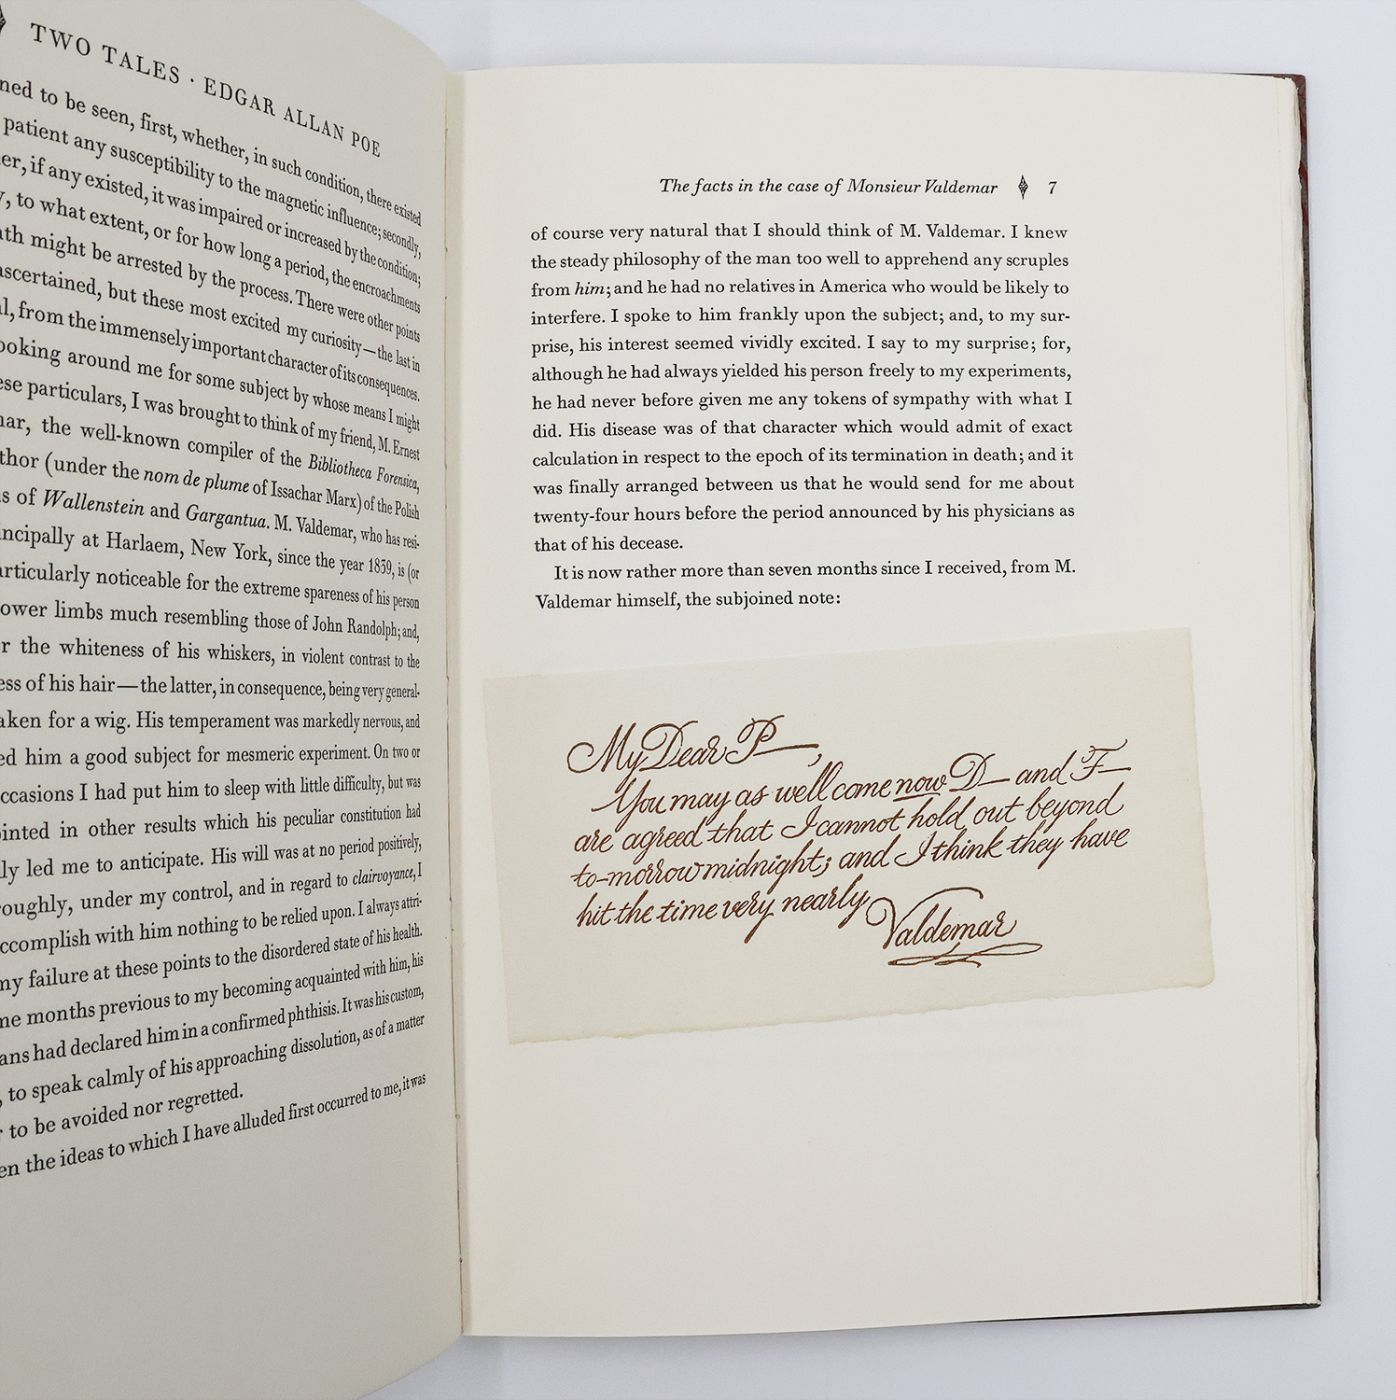 TWO TALES · EDGAR ALLAN POE
to be seen, first, whether, in such condition, there existed
patient any susceptibility to the magnetic influence; secondly,
if any existed, it was impaired or increased by the condition;
to what extent, or for how long a period, the encroachments
might be arrested by the process. There were other points
ascertained, but these most excited my curiosity—the last in
from the immensely important character of its consequences.
looking around me for some subject by whose means I might
particulars, I was brought to think of my friend, M. Ernest
the well-known compiler of the Bibliotheca Forensica,
(under the nom de plume of Issachar Marx) of the Polish
of Wallenstein and Gargantua. M. Valdemar, who has resi-
at Harlaem, New York, since the year 1839, is (or
particularly noticeable for the extreme spareness of his person
lower limbs much resembling those of John Randolph; and,
the whiteness of his whiskers, in violent contrast to the
of his hair—the latter, in consequence, being very general-
for a wig. His temperament was markedly nervous, and
him a good subject for mesmeric experiment. On two or
occasions I had put him to sleep with little difficulty, but was
in other results which his peculiar constitution had
led me to anticipate. His will was at no period positively,
under my control, and in regard to clairvoyance, I
accomplish with him nothing to be relied upon. I always attri-
my failure at these points to the disordered state of his health.
months previous to my becoming acquainted with him, his
had declared him in a confirmed phthisis. It was his custom,
to speak calmly of his approaching dissolution, as of a matter
to be avoided nor regretted.
the ideas to which I have alluded first occurred to me, it was
The facts in the case of Monsieur Valdemar 7
of course very natural that I should think of M. Valdemar. I knew
the steady philosophy of the man too well to apprehend any scruples
from him; and he had no relatives in America who would be likely to
interfere. I spoke to him frankly upon the subject; and, to my sur-
prise, his interest seemed vividly excited. I say to my surprise; for,
although he had always yielded his person freely to my experiments,
he had never before given me any tokens of sympathy with what I
did. His disease was of that character which would admit of exact
calculation in respect to the epoch of its termination in death; and it
was finally arranged between us that he would send for me about
twenty-four hours before the period announced by his physicians as
that of his decease.
It is now rather more than seven months since I received, from M.
Valdemar himself, the subjoined note:
My Dear P—,
You may as well come now D— and F—
are agreed that I cannot hold out beyond
to-morrow midnight; and I think they have
hit the time very nearly
Valdemar